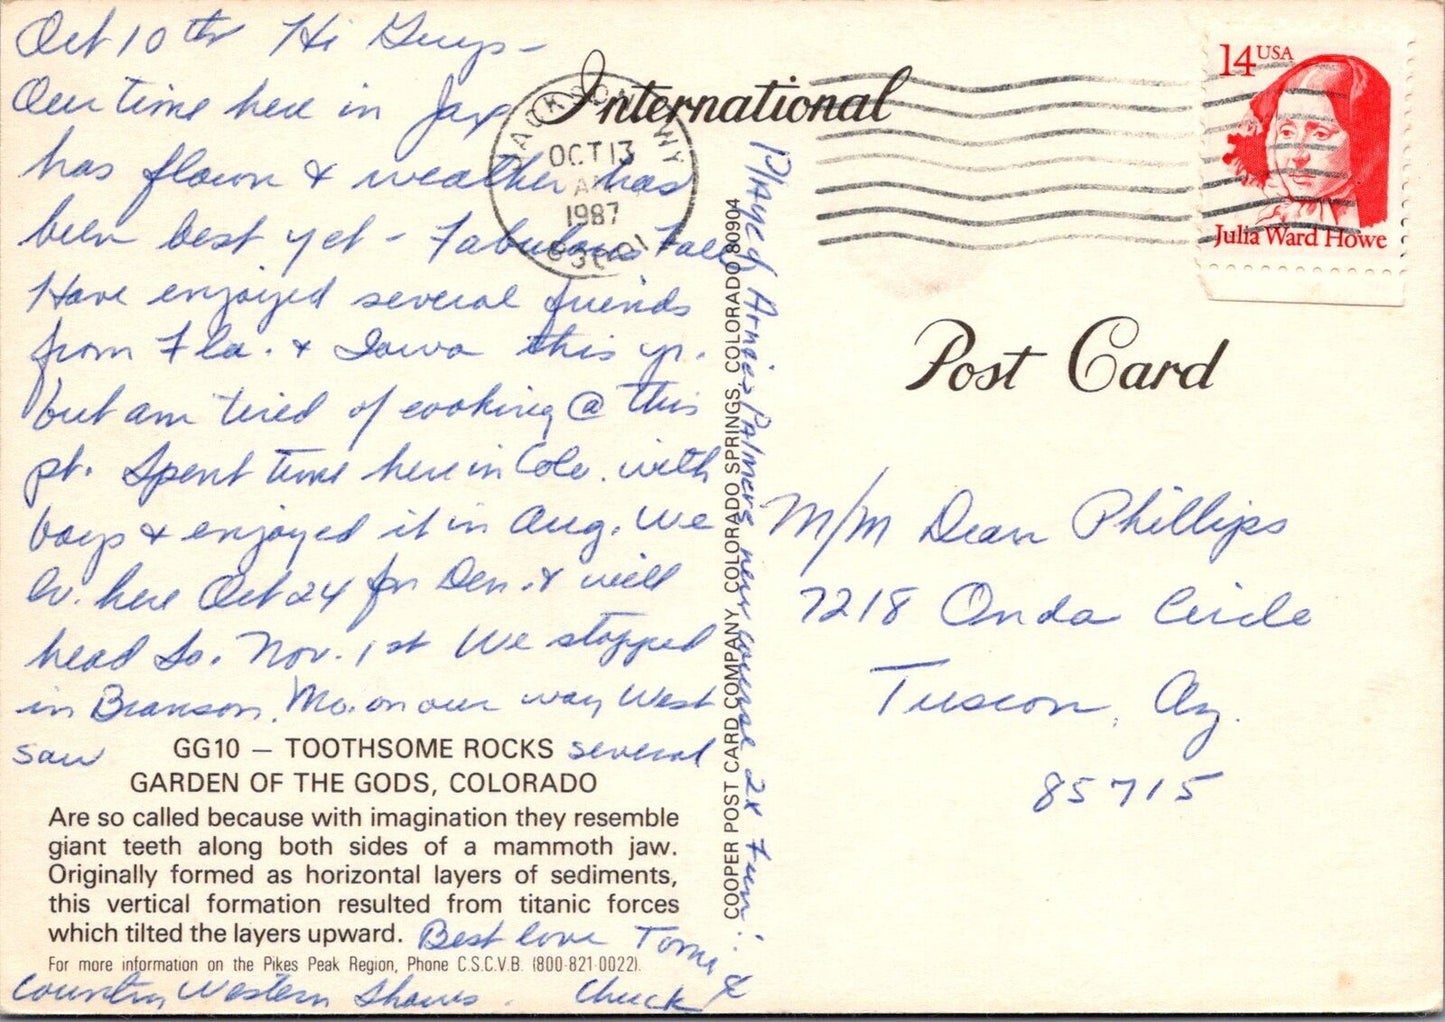 Oct 10th Hi Guys -
Our time here in Jax
has flown & weather has
been best yet - Fabulous Fall
Have enjoyed several friends
from Fla. & Iowa this yr.
but am tired of cooking @ this
pt. Spent time here in Colo. with
boys & enjoyed it in Aug. We
lv. here Oct 24 for Den. & will
head So. Nov. 1st We stopped
in Branson, Mo. on our way West
saw several
GG10 — TOOTHSOME ROCKS
GARDEN OF THE GODS, COLORADO
Are so called because with imagination they resemble
giant teeth along both sides of a mammoth jaw.
Originally formed as horizontal layers of sediments,
this vertical formation resulted from titanic forces
which tilted the layers upward.
For more information on the Pikes Peak Region, Phone C.S.C.V.B. (800-821-0022).
Country Western Shows.
Best love Tomi &
Chuck
Played Arnie Palmers new course 2x Fun!
COOPER POST CARD COMPANY, COLORADO SPRINGS, COLORADO 80904
International
JACKSON WY
OCT 13
AM
1987
83001
14 USA
Julia Ward Howe
Post Card
M/M Dean Phillips
7218 Onda Circle
Tuscon, Az.
85715